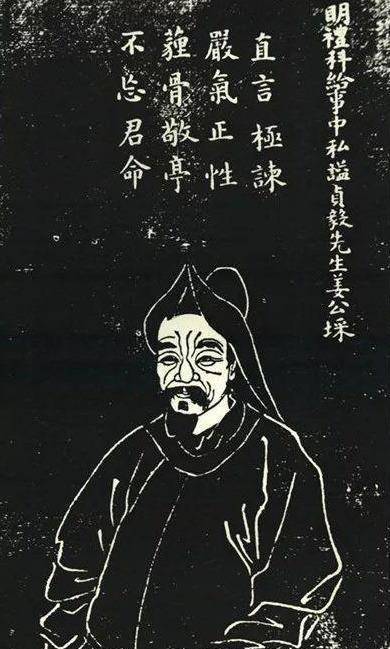 明禮科給事中私諡貞毅先生姜公埰
直言極諫
嚴氣正性
薶骨敬亭
不忘君命